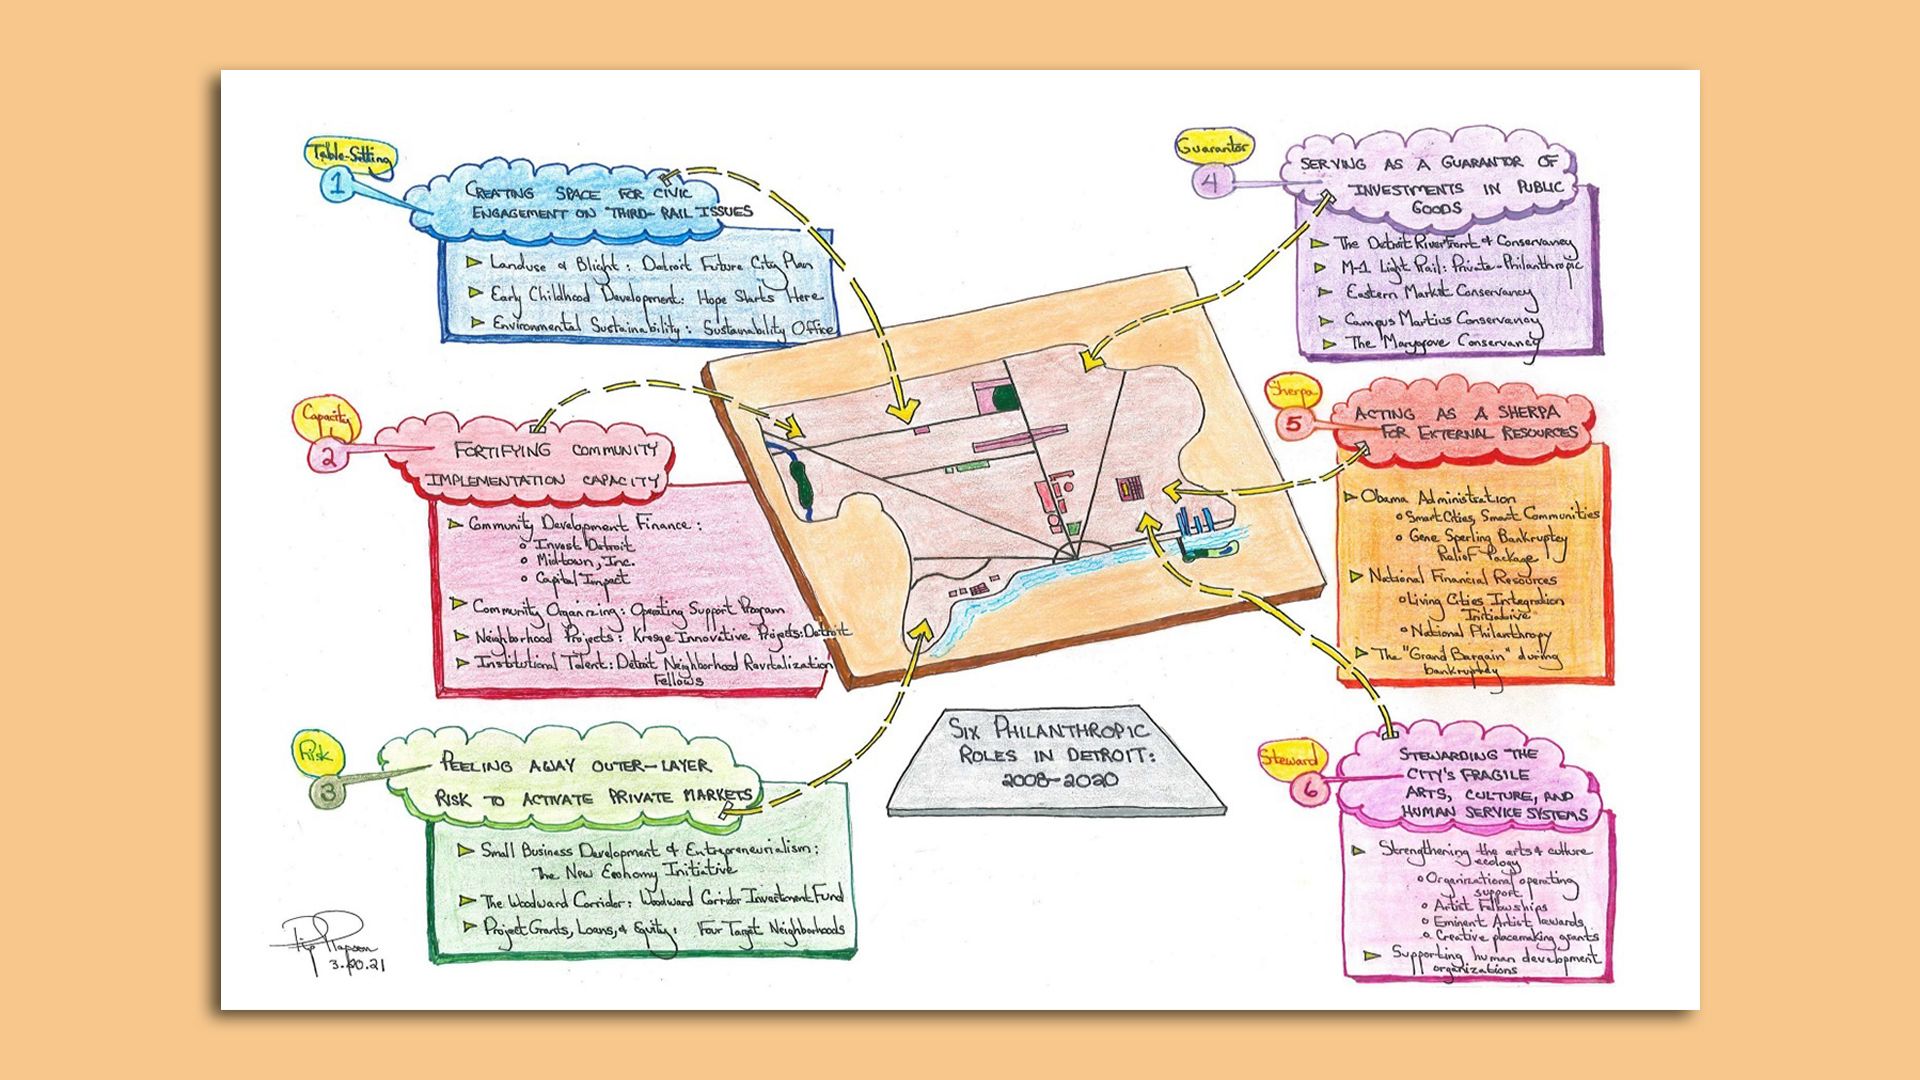 Table-Setting
1
CREATING SPACE FOR CIVIC
ENGAGEMENT ON THIRD-RAIL ISSUES
Landuse & Blight: Detroit Future City Plan
Early Childhood Development: Hope Starts Here
Environmental Sustainability: Sustainability Office
Capacity
2
FORTIFYING COMMUNITY
IMPLEMENTATION CAPACITY
Community Development Finance:
Invest Detroit
Midtown, Inc.
Capital Impact
Community Organizing: Operating Support Program
Neighborhood Projects: Kresge Innovative Projects: Detroit
Institutional Talent: Detroit Neighborhood Revitalization
Fellows
Risk
3
PEELING AWAY OUTER-LAYER
RISK TO ACTIVATE PRIVATE MARKETS
Small Business Development & Entrepreneurialism:
The New Economy Initiative
The Woodward Corridor: Woodward Corridor Investment Fund
Project Grants, Loans, & Equity: Four Target Neighborhoods
SIX PHILANTHROPIC
ROLES IN DETROIT:
2008-2020
Guarantor
4
SERVING AS A GUARANTOR OF
INVESTMENTS IN PUBLIC
GOODS
The Detroit Riverfront & Conservancy
M-1 Light Rail: Private-Philanthropic
Eastern Market Conservancy
Campus Martius Conservancy
The Marygrove Conservancy
Sherpa
5
ACTING AS A SHERPA
FOR EXTERNAL RESOURCES
Obama Administration
Smart Cities, Smart Communities
Gene Sperling Bankruptcy
Relief Package
National Financial Resources
Living Cities Integration
Initiative
National Philanthropy
The "Grand Bargain" during
bankruptcy
Steward
6
STEWARDING THE
CITY'S FRAGILE
ARTS, CULTURE, AND
HUMAN SERVICE SYSTEMS
Strengthening the arts & culture
ecology
Organizational operating
support
Artist Fellowships
Eminent Artist Awards
Creative placemaking grants
Supporting human development
organizations
Rip Rapson
3.20.21